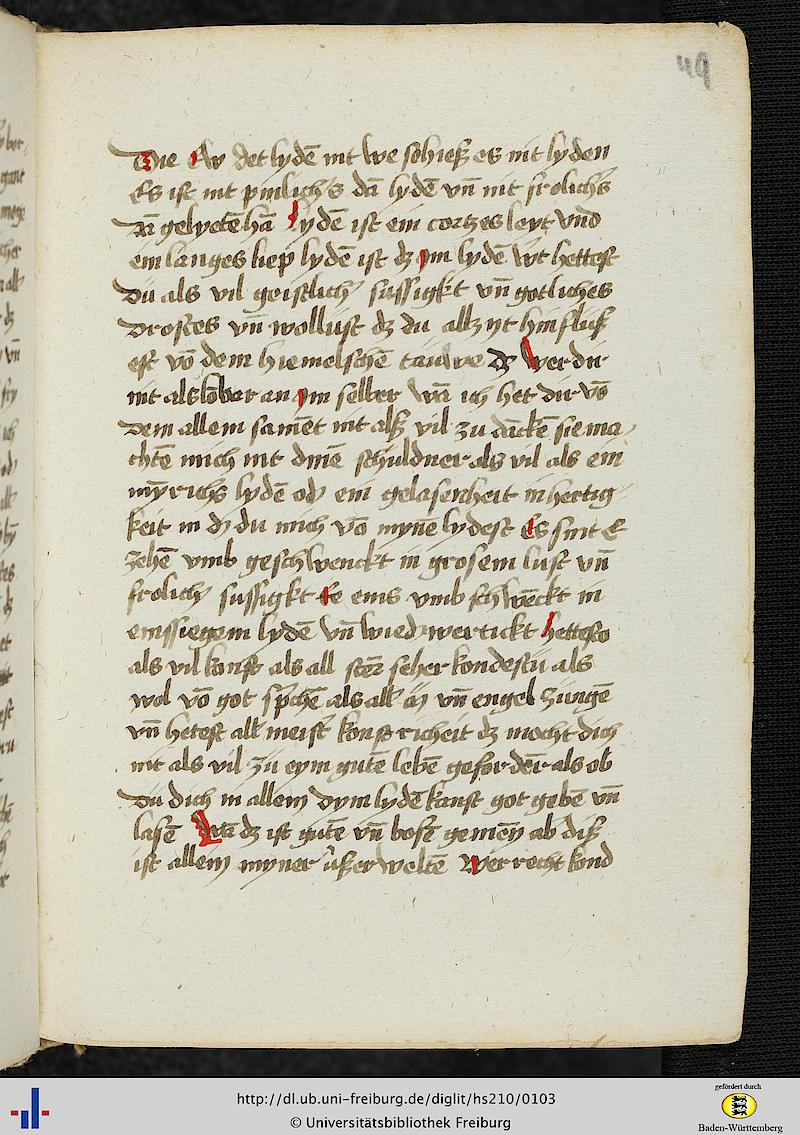 49
Die Ew det lydē nit we sohiesz es nit lyden
Es ist nit pinlichs dā lydē vn̄ nit frolichs
dā gelyetē hā lydē ist ein cortzes leyt vnd
ein langes liep lydē ist dz ym lydē wt hettest
Du als vil geistlich sussigkt vn̄ gotliches
Drostes vn̄ wollust dz du allzyt hin flusz
est vō dem hiemelschē tauwe dz wer dir
nit als lōbar an ym selber wā ich het dir vō
Dem allem samēt nit alsz vil zu dāckē sie ma
chtē mich nit dinē schuldner als vil als ein
myrichs lydē od ein gelasenheit in hertig
keit in d du mich vō myne lydest Es sint E
zehē vmb geschwenckt in grosem lust vn̄
frolich sussigkt te eins vmb schwēckt in
emssiegem lydē vn̄ wied wertickt hettesto
als vil konst als all stēr seher kondestu als
wol vō got sp̄chē als all vn̄ engel zungē
vn̄ hetest all meist konst richeit dz mocht dich
nit als vil zu eym gutē lebē geforder als ob
Du dich in allem dym lydē kanst got gebē vn̄
lasē wā dz ist gutē vn̄ bosē gemein ab disz
ist allein myner uszerweltē wer recht kond
http://dl.ub.uni-freiburg.de/diglit/hs210/0103
© Universitätsbibliothek Freiburg
gefördert durch
Baden-Württemberg